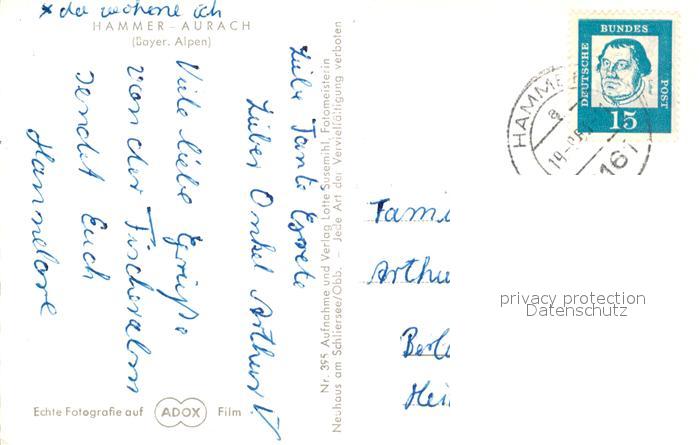 x da wohne ich
HAMMER - AURACH
(Bayer. Alpen)
Liebe Tante
Lieber Onkel Arthur!
Viele liebe Grüße
von der Fischeralm
sendet Euch
Hannelore
Echte Fotografie auf ADOX Film
Nr. 395 Aufnahme und Verlag Lotte Susemihl, Fotomeisterin
Neuhaus am Schliersee/Obb. - Jede Art der Vervielfältigung verboten
DEUTSCHE BUNDES POST
15
HAMME
a
Fami
Arthu
Berl
Hei
privacy protection
Datenschutz